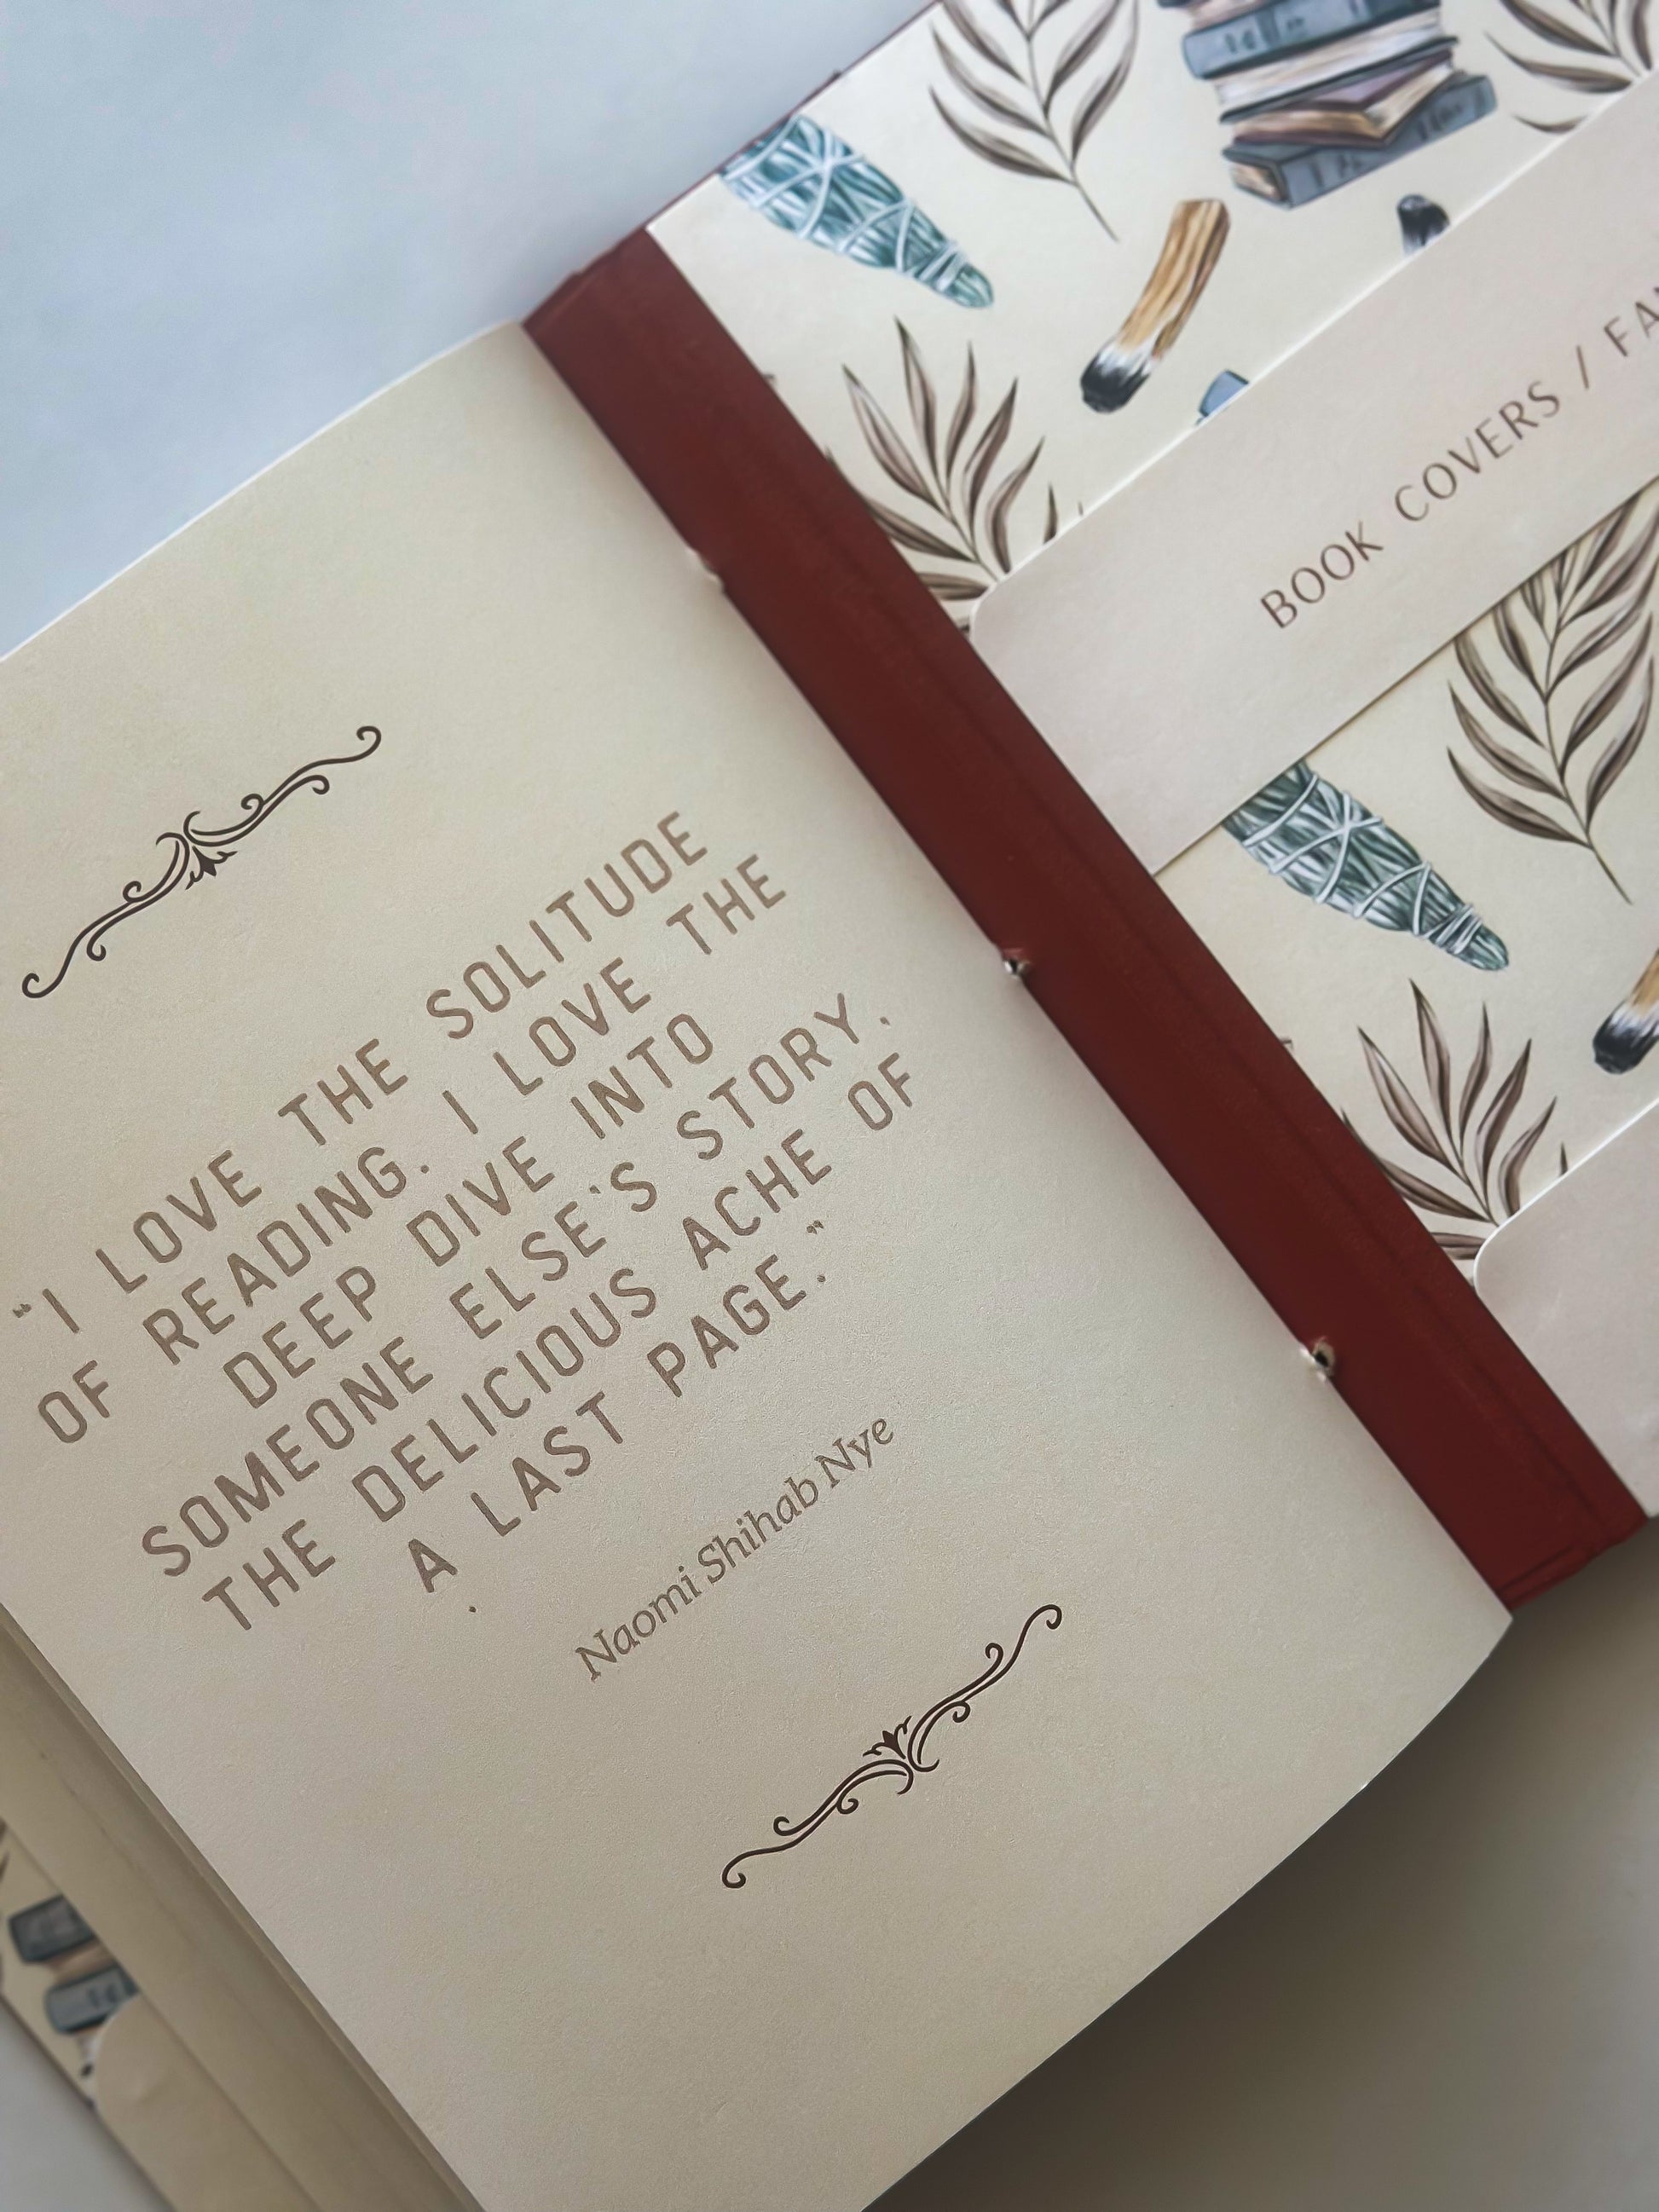 “I LOVE THE SOLITUDE
OF READING. I LOVE THE
DEEP DIVE INTO
SOMEONE ELSE'S STORY.
THE DELICIOUS ACHE OF
A LAST PAGE.”
Naomi Shihab Nye
BOOK COVERS /